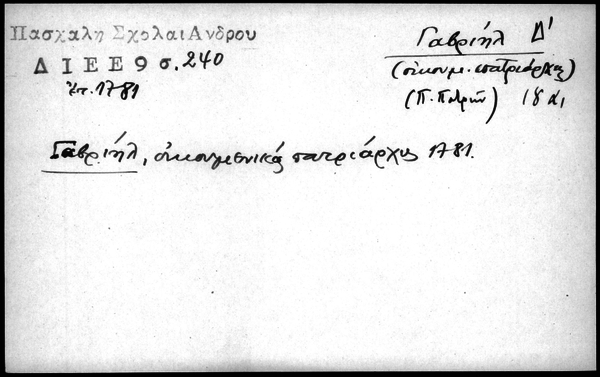 Πασχαλη Σχολαι Ανδρου
Δ Ι Ε Ε 9 σ. 240
ἔτ. 1781
Γαβριήλ Δ'
(οἰκουμ. πατριάρχης)
(Π. Πατρῶν) 18 αι
Γαβριήλ, οἰκουμενικός πατριάρχης 1781.